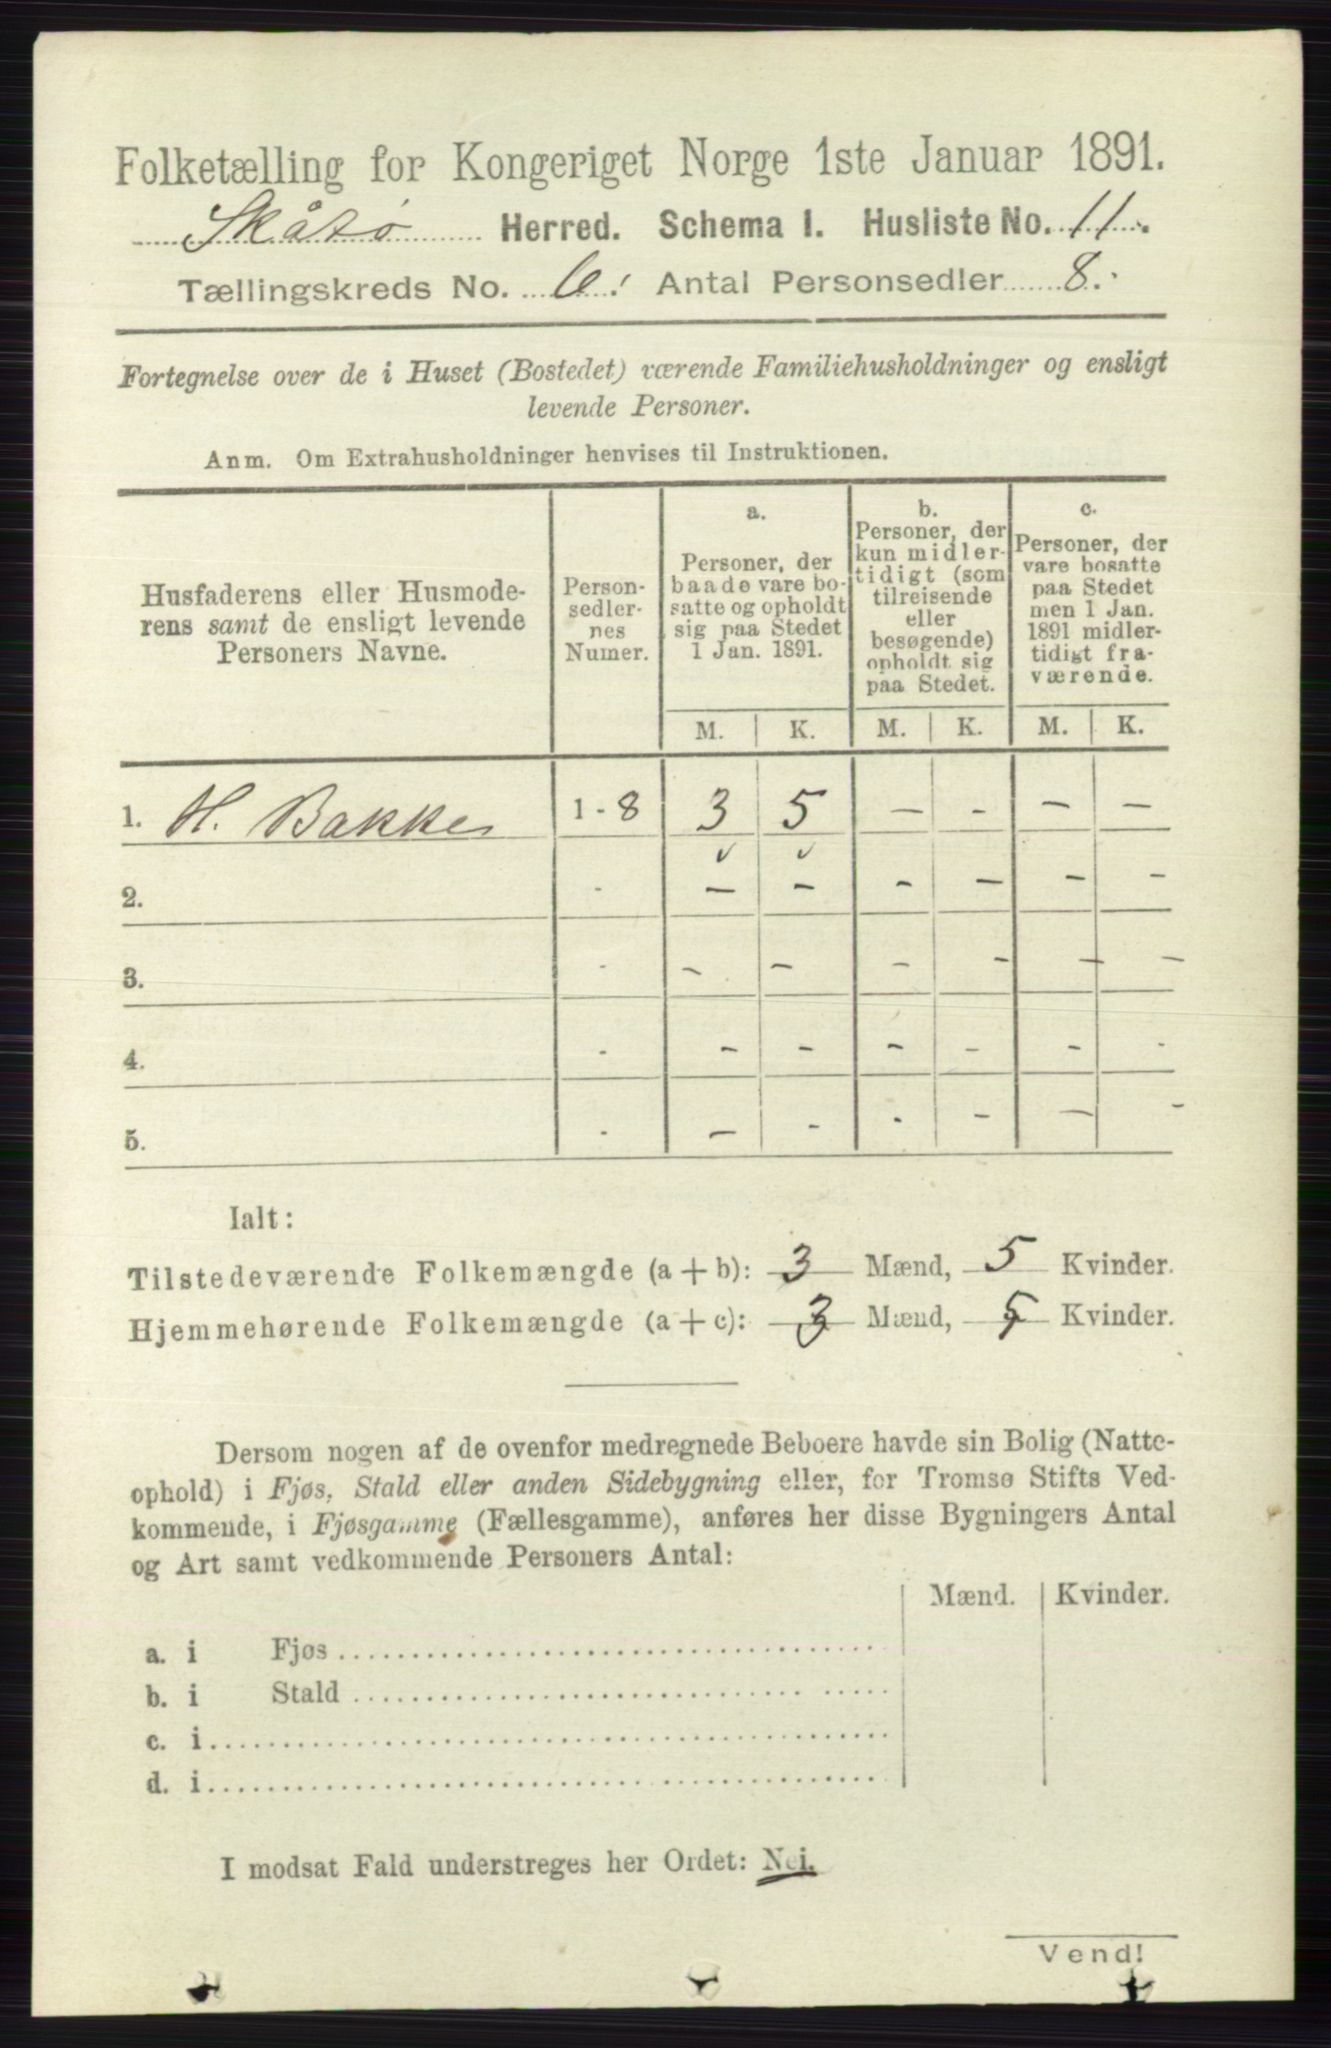 Folketælling for Kongeriget Norge 1ste Januar 1891.
Skåtø Herred. Schema I. Husliste No. 11.
Tællingskreds No. 6. Antal Personsedler 8.
Fortegnelse over de i Huset (Bostedet) værende Familiehusholdninger og ensligt
levende Personer.
Anm. Om Extrahusholdninger henvises til Instruktionen.
Husfaderens eller Husmode-
rens samt de ensligt levende
Personers Navne.
Person-
sedler-
nes
Numer.
a.
Personer, der
baade vare bo-
satte og opholdt
sig paa Stedet
1 Jan. 1891.
b.
Personer, der
kun midler-
tidigt (som
tilreisende
eller
besøgende)
opholdt sig
paa Stedet.
c.
Personer, der
vare bosatte
paa Stedet
men 1 Jan.
1891 midler-
tidigt fra-
værende.
M. K. M. K. M. K.
1. H. Bakke 1-8 3 5 - - - -
2. - - - - - - -
3. - - - - - - -
4. - - - - - - -
5. - - - - - - -
Ialt:
Tilstedeværende Folkemængde (a + b): 3 Mænd, 5 Kvinder.
Hjemmehørende Folkemængde (a + c): 3 Mænd, 5 Kvinder.
Dersom nogen af de ovenfor medregnede Beboere havde sin Bolig (Natte-
ophold) i Fjøs, Stald eller anden Sidebygning eller, for Tromsø Stifts Ved-
kommende, i Fjøsgamme (Fællesgamme), anføres her disse Bygningers Antal
og Art samt vedkommende Personers Antal:
Mænd. Kvinder.
a. i Fjøs
b. i Stald
c. i
d. i
I modsat Fald understreges her Ordet: Nei.
Vend!